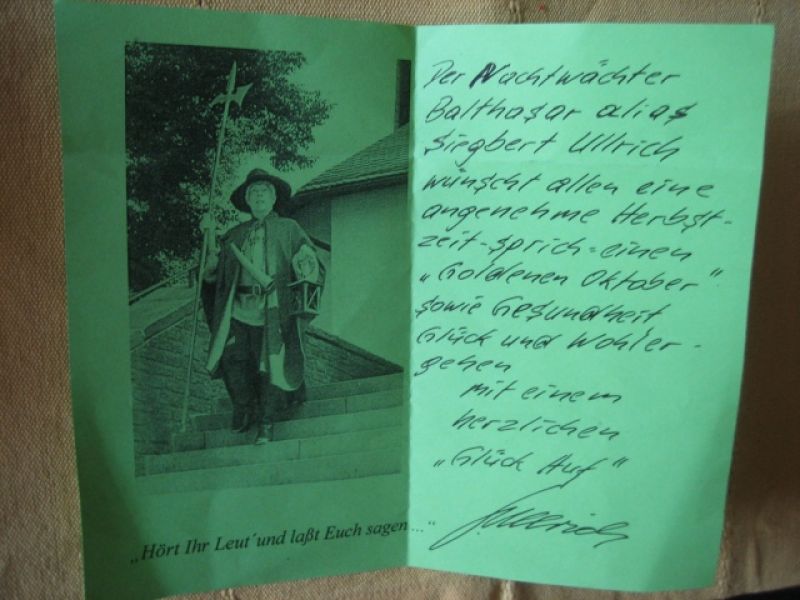 „Hört Ihr Leut´und laßt Euch sagen..."
Der Nachtwächter
Balthasar alias
Siegbert Ullrich
wünscht allen eine
angenehme Herbst-
zeit-sprich=einen
„Goldenen Oktober"
sowie Gesundheit
Glück und Wohler-
gehen
mit einem
herzlichen
„Glück Auf"
S. Ullrich